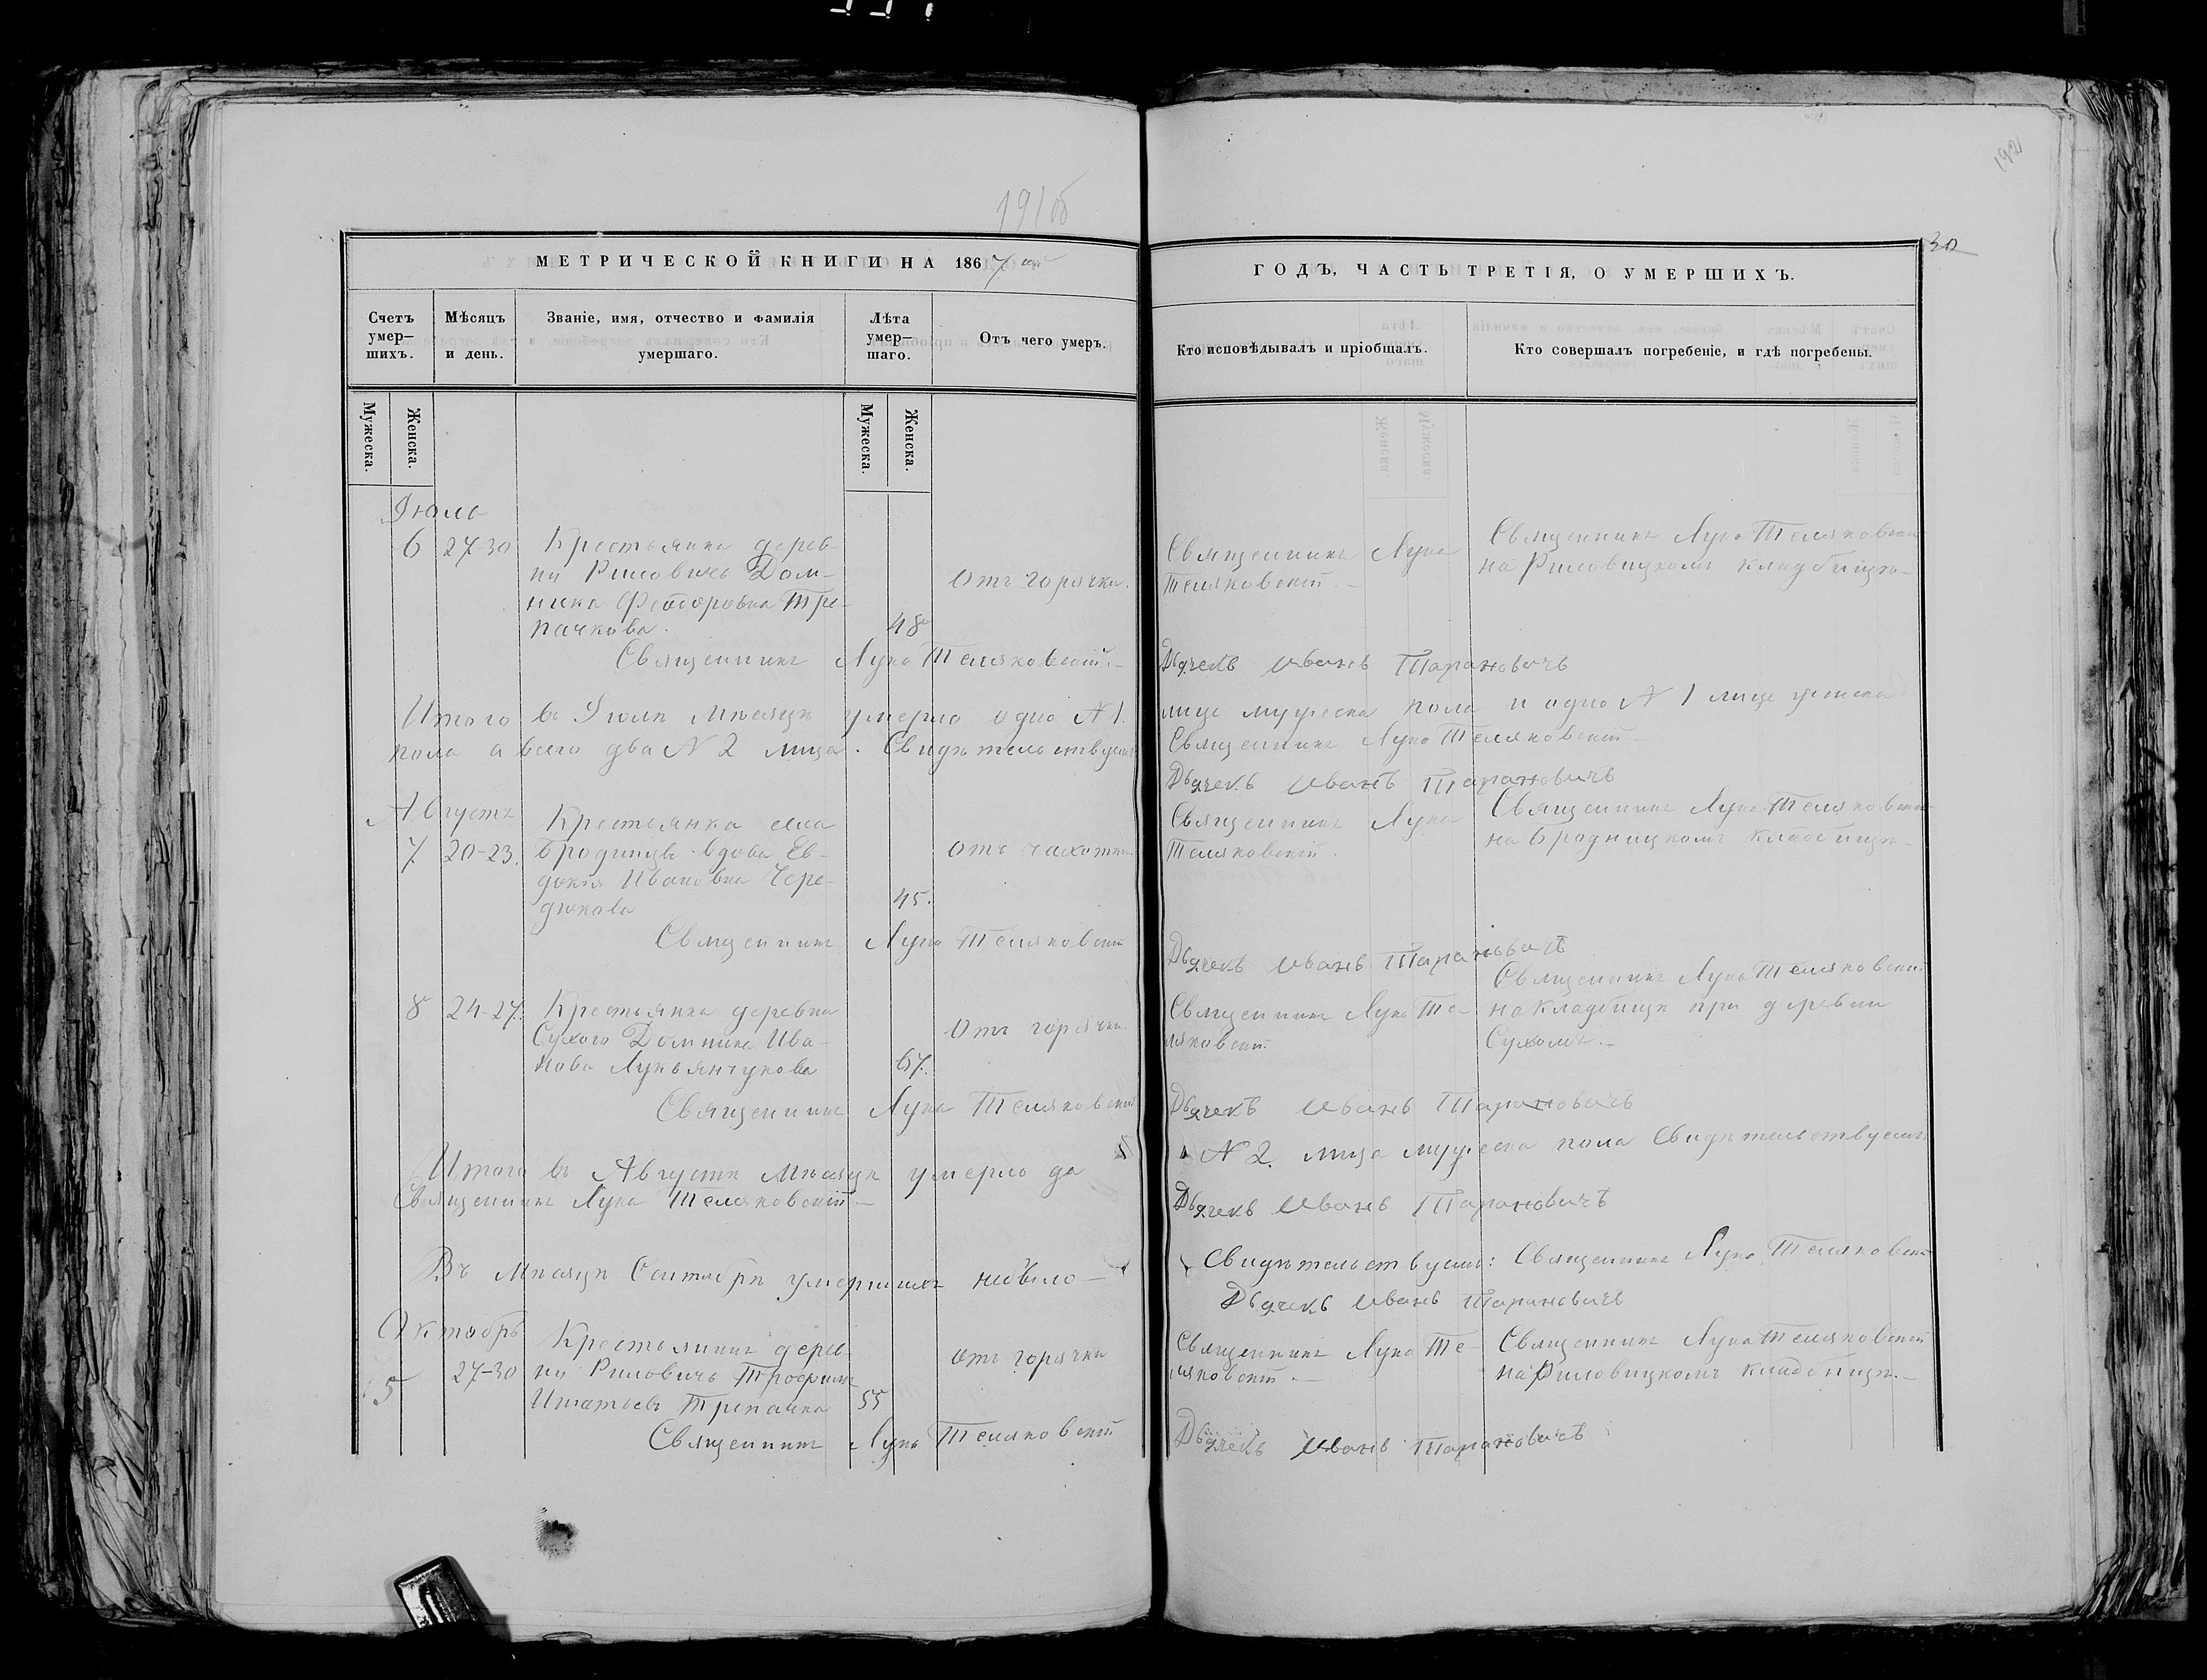 191об
192
30
МЕТРИЧЕСКОЙ КНИГИ НА 1867 ой
ГОДЪ, ЧАСТЬ ТРЕТІЯ, О УМЕРШИХЪ.
Счетъ умер—шихъ.
Мѣсяцъ и день.
Званіе, имя, отчество и фамилія умершаго.
Лѣта умер—шаго.
Отъ чего умеръ.
Кто исповѣдывалъ и пріобщалъ.
Кто совершалъ погребеніе, и гдѣ погребены.
Мужеска.
Женска.
Мужеска.
Женска.
Іюль
6 27-30 Крестьянка дерев-
ни Риловичь Дом-
ника Федоровна Тре-
пачкова.
48
Отъ горячки.
Священникъ Лука
Теляковскій.—
Священникъ Лука Теляковскій
на Риловицкомъ кладбищѣ—
Священникъ Лука Теляковскій.—
Дьячекъ Иванъ Тарановичъ
Итого въ Іюлѣ Мѣсяцѣ умерло одно № 1.
лице мужеска пола и одно № 1 лице женска
пола а всего два № 2 лица. Свидѣтельствуемъ
Священникъ Лука Теляковскій—
Дьячекъ Иванъ Тарановичъ
Августъ
7 20-23. Крестьянка села
Бродницы вдова Ев-
докія Ивановна Чере-
дюкова
45.
Отъ чахотки.
Священникъ Лука
Теляковскій.
Священникъ Лука Теляковскій
на Бродницкомъ кладбищѣ—
Священникъ Лука Теляковскій
Дьячекъ Иванъ Тарановичъ
8 24-27. Крестьянка деревни
Сухого Домника Ива-
нова Лукьянчукова
67.
Отъ горячки.
Священникъ Лука Те-
ляковскій.
Священникъ Лука Теляковскій
на кладбищѣ при деревни
Сухомъ.—
Священникъ Лука Теляковскій
Дьячекъ Иванъ Тарановичъ
Итого въ Августѣ Мѣсяцѣ умерло
№ 2. лица мужеска пола Свидѣтельствуемъ
Священникъ Лука Теляковскій—
Дьячекъ Иванъ Тарановичъ
Въ Мѣсяцѣ Сентябрѣ умершихъ небыло—
Свидѣтельствуемъ: Священникъ Лука Теляковскій
Дьячекъ Иванъ Тарановичъ
Октябрь
5 27-30 Крестьянинъ дерев-
ни Риловичь Трофимъ
Игнатьевъ Трепачка
55
Отъ горячки
Священникъ Лука Те-
ляковскій.—
Священникъ Лука Теляковскій
на Риловицкомъ кладбищѣ.—
Священникъ Лука Теляковскій
Дьячекъ Иванъ Тарановичъ